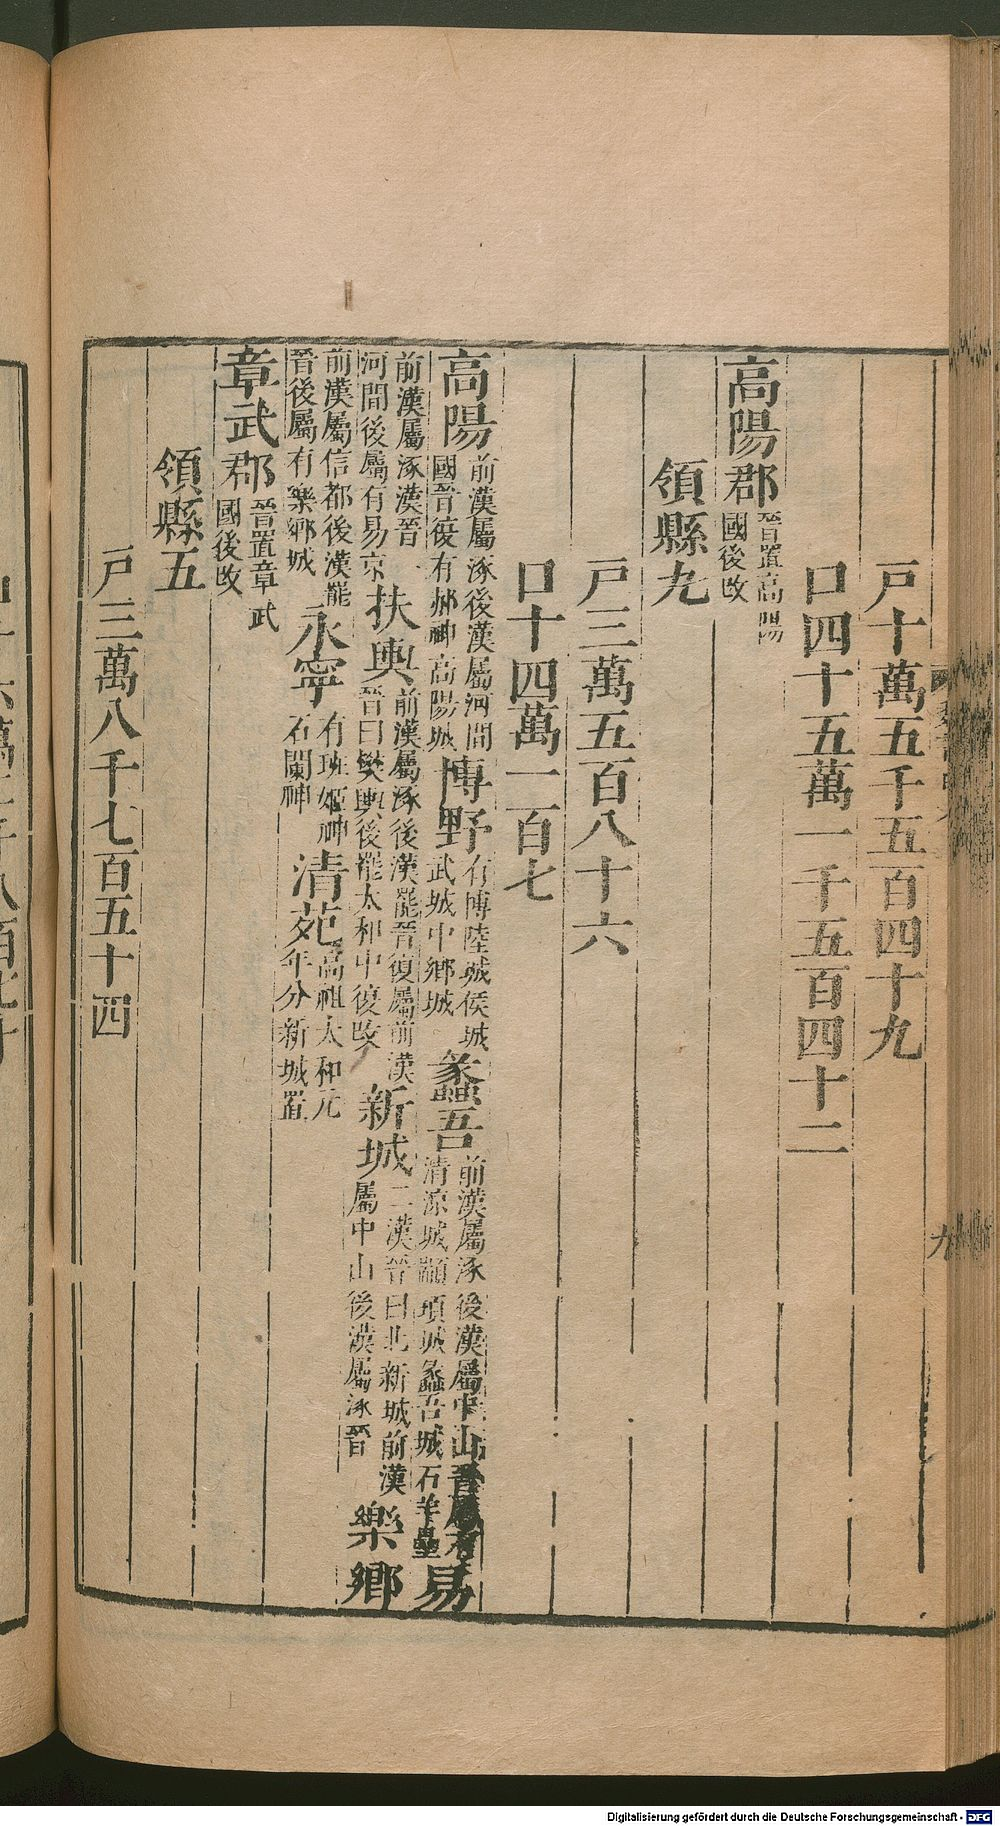 戸十萬五千五百四十九
口四十五萬一千五百四十二
高陽郡晉置高陽
國後改
領縣九
戸三萬五百八十六
口十四萬一百七
高陽前漢屬涿後漢屬河間
國晉復有郝神高陽城
博野有博陸城侯城
武城中鄉城
蠡吾前漢屬涿後漢屬中山晉屬有
清凉城顓頊城蠡吾城石羊壘
易
前漢屬涿漢晉
河間後屬有易京
扶輿前漢屬涿後漢罷晉復屬前漢
晉曰樊輿後罷太和中復改
新城二漢晉曰北新城前漢
屬中山後漢屬涿晉
樂鄉
前漢屬信都後漢罷
晉後屬有樂鄉城
永寧有班姬神
石蘭神
清苑高祖太和元
年分新城置
章武郡晉置章武
國後改
領縣五
戸三萬八千七百五十四
九
Digitalisierung gefördert durch die Deutsche Forschungsgemeinschaft - DFG